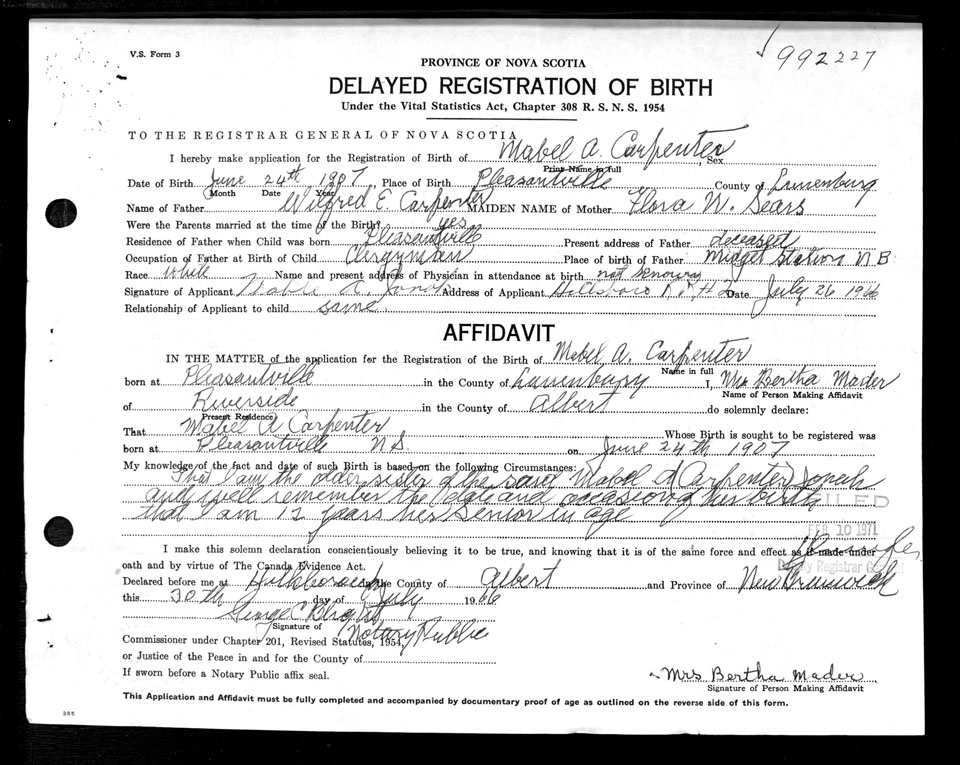 V.S. Form 3
992227
PROVINCE OF NOVA SCOTIA
DELAYED REGISTRATION OF BIRTH
Under the Vital Statistics Act, Chapter 308 R. S. N. S. 1954
TO THE REGISTRAR GENERAL OF NOVA SCOTIA
I hereby make application for the Registration of Birth of Mabel A. Carpenter, Sex
Print Name in full
Date of Birth June 24th 1907, Place of Birth Pleasantville County of Lunenburg
Month Date Year
Name of Father Wilfred E Carpenter MAIDEN NAME of Mother Flora W. Sears
Were the Parents married at the time of the Birth? yes
Residence of Father when Child was born Pleasantville Present address of Father deceased
Occupation of Father at Birth of Child Clergyman Place of birth of Father Midget Station N.B
Race White Name and present address of Physician in attendance at birth not known
Signature of Applicant Mable A. Jonah Address of Applicant Hillsboro R.R.#2 Date July 26 1966
Relationship of Applicant to child same
AFFIDAVIT
IN THE MATTER of the application for the Registration of the Birth of Mabel A. Carpenter
Name in full
born at Pleasantville in the County of Lunenburg I, Mrs Bertha Mader
Name of Person Making Affidavit
of Riverside in the County of Albert do solemnly declare:
Present Residence
That Mabel A Carpenter Whose Birth is sought to be registered was
born at Pleasantville N.S. on June 24th 1907
My knowledge of the fact and date of such Birth is based on the following Circumstances:
That I am the older sister of the said Mabel A (Carpenter) Jonah
and well remember the date and occasion of her birth
that I am 12 years her senior in age
FILED
FEB 10 1971
Deputy Registrar General
I make this solemn declaration conscientiously believing it to be true, and knowing that it is of the same force and effect as if made under
oath and by virtue of The Canada Evidence Act.
Declared before me at in the County of Albert and Province of New Brunswick
this 30th day of July 1966
George C
Signature of
Notary Public
Commissioner under Chapter 201, Revised Statutes, 1954,
or Justice of the Peace in and for the County of
If sworn before a Notary Public affix seal.
Mrs Bertha Mader
Signature of Person Making Affidavit
This Application and Affidavit must be fully completed and accompanied by documentary proof of age as outlined on the reverse side of this form.
385